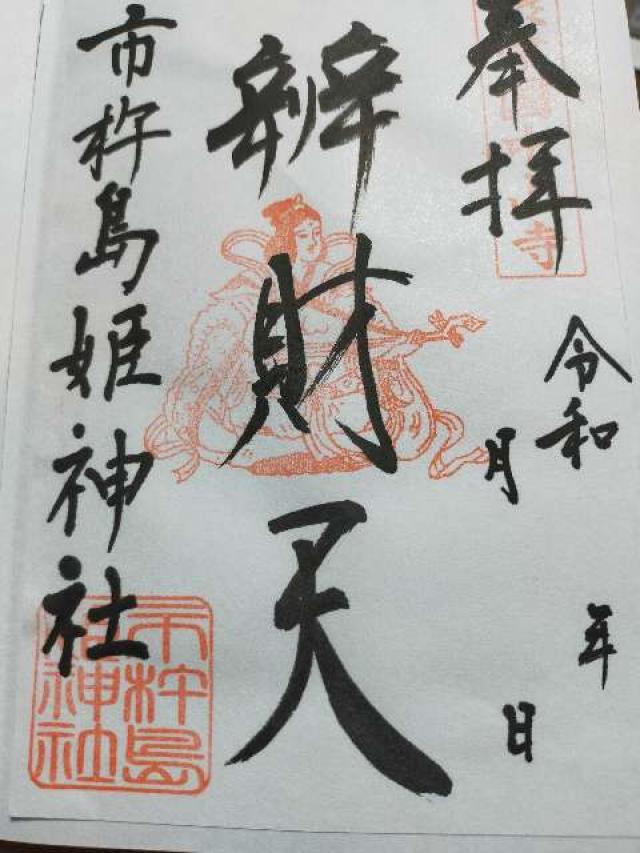 奉拝
令和 年
月 日
辨財天
市杵島姫神社
市杵島
姫神社
寺